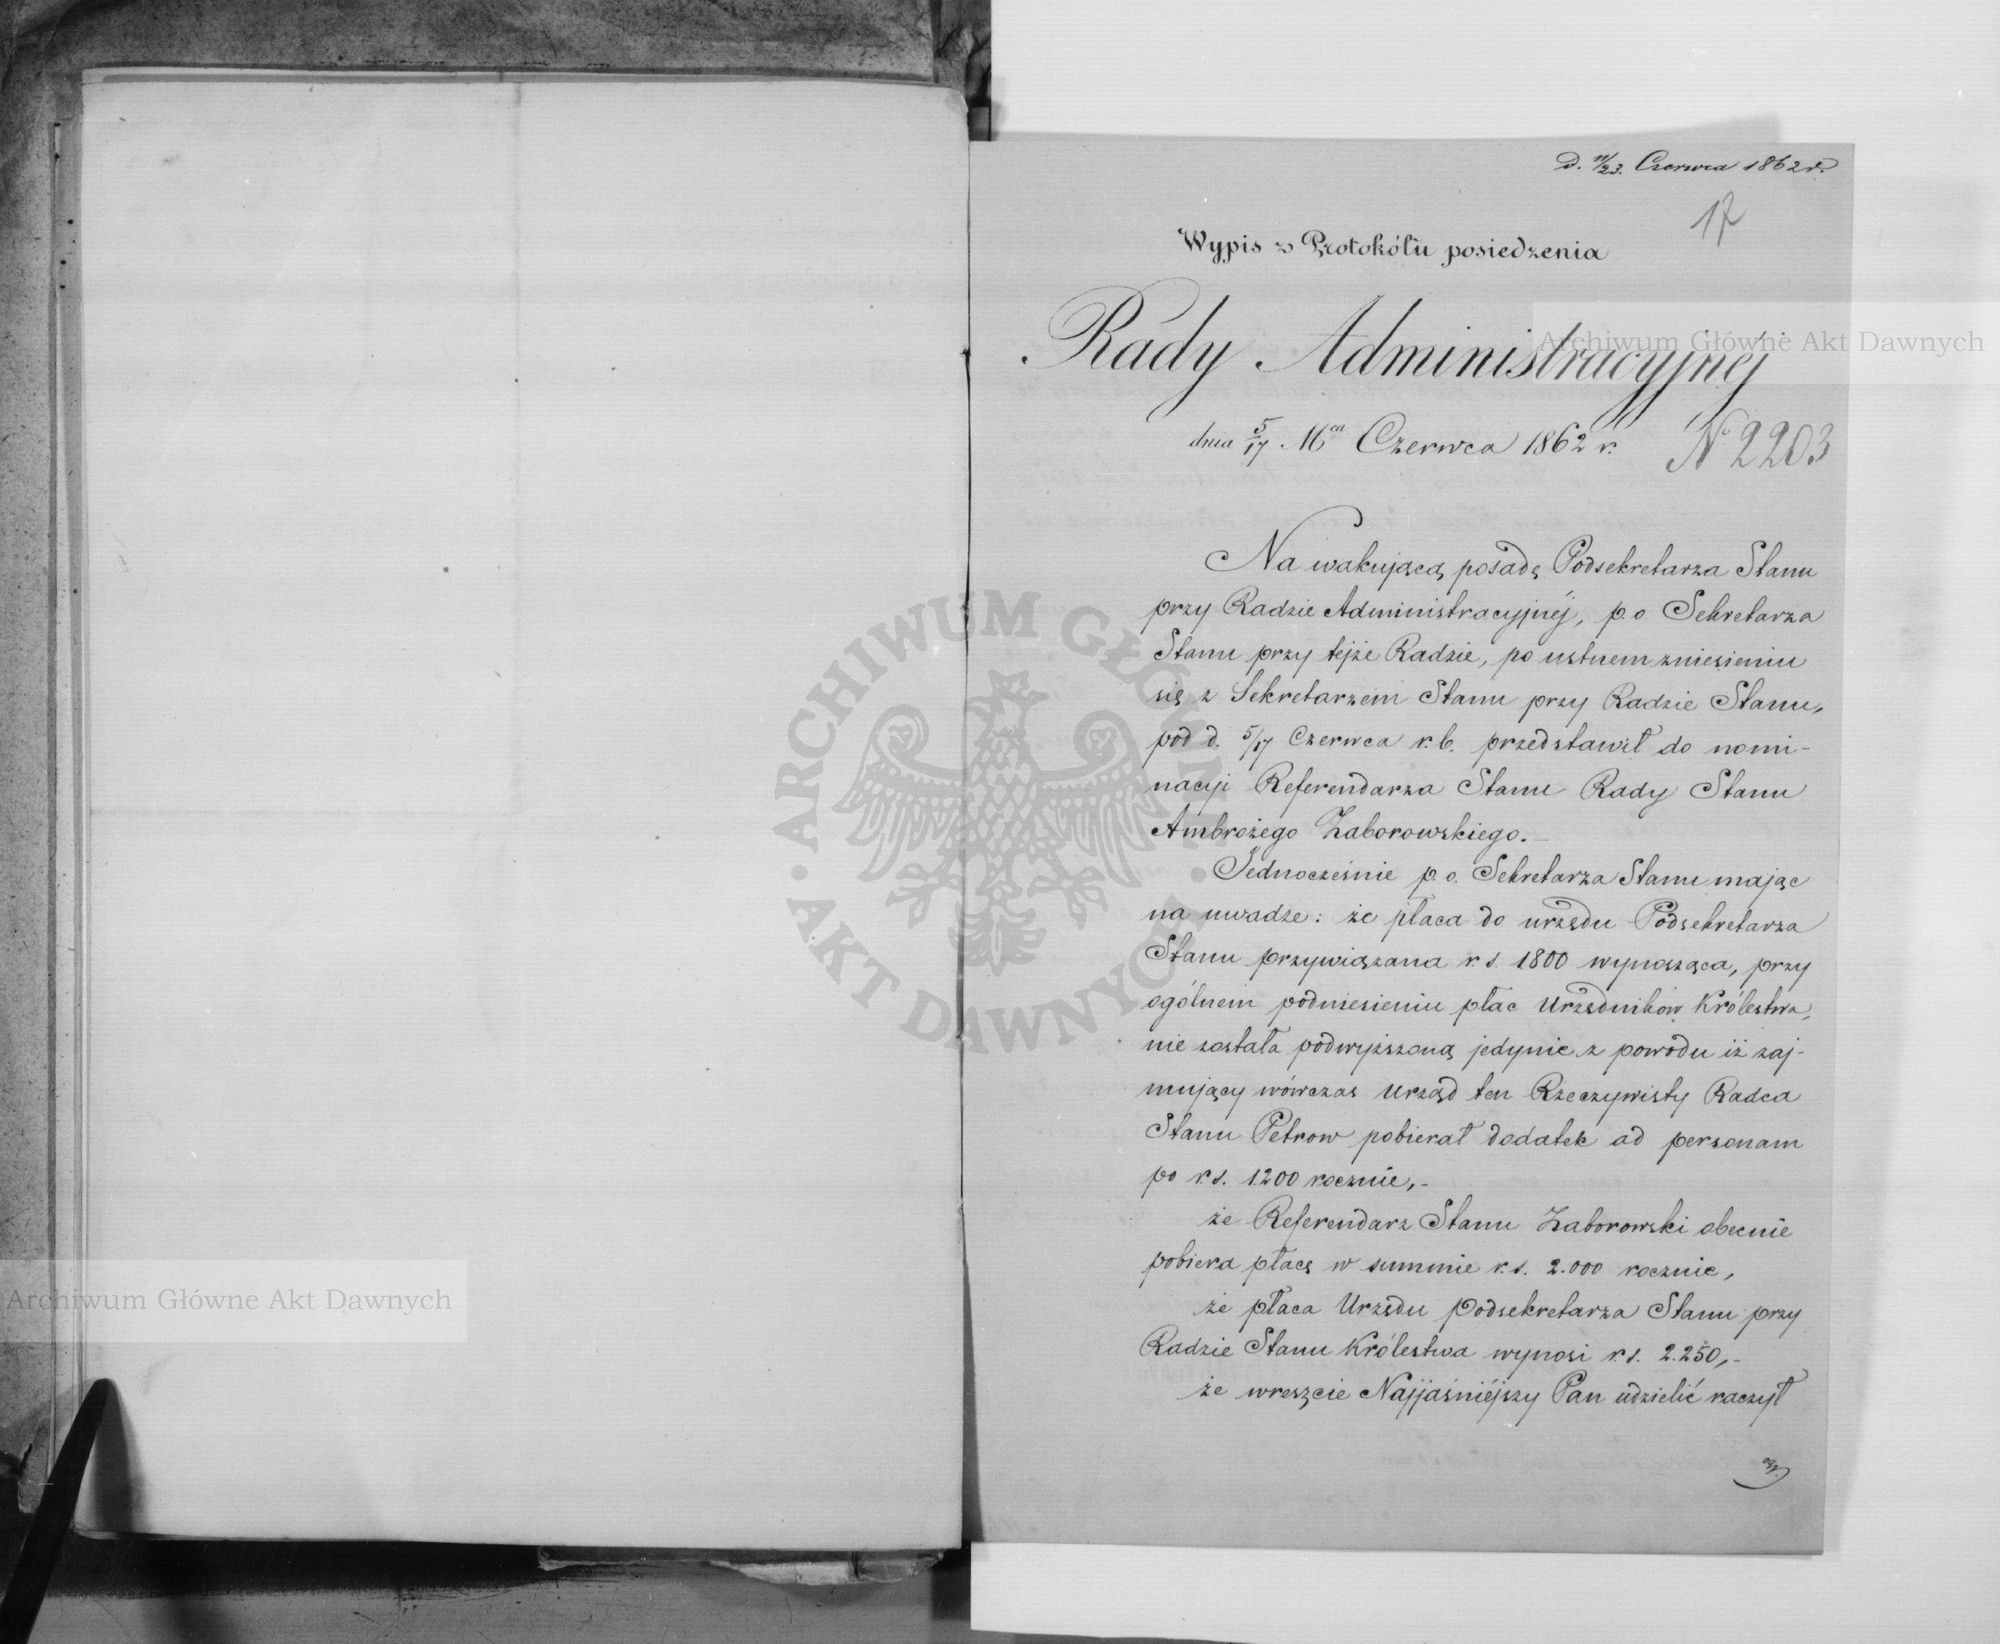 D. 11/23. Czerwca 1862 r.
17
Wypis z Protokółu posiedzenia
Rady Administracyjnej
dnia 5/17 Mca Czerwca 1862 r.
N 2203
Na wakującą posadę Podsekretarza Stanu
przy Radzie Administracyjnéj, p.o Sekretarza
Stanu przy tejże Radzie, po ustnem zniesieniu
się z Sekretarzem Stanu przy Radzie Stanu,
pod d. 5/17 Czerwca r.b. przedstawił do nomi-
nacyi Referendarza Stanu Rady Stanu
Ambrożego Zaborowskiego.-
Jednocześnie p.o. Sekretarza Stanu mając
na uwadze: że płaca do urzędu Podsekretarza
Stanu przywiązana r.s. 1800 wynosząca, przy
ogólnem podniesieniu płac Urzędników Królestwa,
nie została podwyższoną jedynie z powodu iż zaj-
mujący wówczas Urząd ten Rzeczywisty Radca
Stanu Petrow pobierał dodatek ad personam
po r.s. 1200 rocznie,-
że Referendarz Stanu Zaborowski obecnie
pobiera płacę w summie r.s. 2.000 rocznie,
że płaca Urzędu Podsekretarza Stanu przy
Radzie Stanu Królestwa wynosi r.s. 2.250,-
że wreszcie Najjaśniéjszy Pan udzielić raczył
Archiwum Główne Akt Dawnych
Archiwum Główne Akt Dawnych
ARCHIWUM GŁÓWNE
AKT DAWNYCH